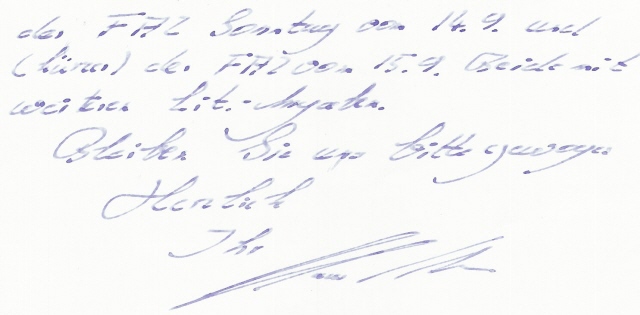 der FAZ Sonntag vom 14.9. und
(kürzer) der FAZ vom 15.9. Beide mit
weiteren Lit.-Angaben.
Bleiben Sie uns bitte gewogen
Herzlich
Ihr